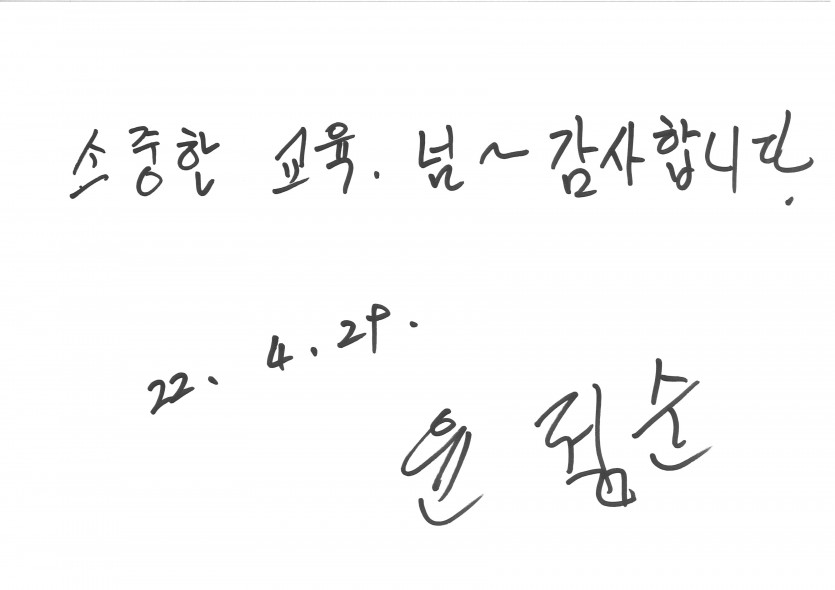 소중한 교육. 넘~감사합니다.
22. 4. 29.
윤 점순